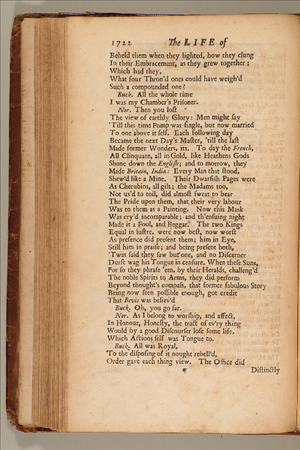 1722 The LIFE of
Beheld them when they lighted, how they clung
In their Embracement, as they grew together;
Which had they,
What four Thron'd ones could have weigh'd
Such a compounded one?
Buck. All the whole time
I was my Chamber's Prisoner.
Nor. Then you lost
The view of earthly Glory: Men might say
'Till this time Pomp was single, but now married
To one above it self. Each following day
Became the next Day's Master, 'till the last
Made former Wonders, its. To day the French,
All Clinquant, all in Gold, like Heathens Gods
Shone down the English; and to morrow, they
Made Britain, India: Every Man that stood,
Shew'd like a Mine. Their Dwarfish Pages were
As Cherubins, all gilt; the Madams too,
Not us'd to toil, did almost sweat to bear
The Pride upon them, that their very labour
Was to them as a Painting. Now this Mask
Was cry'd incomparable; and th'ensuing night
Made it a Fool, and Beggar. The two Kings
Equal in lustre, were now best, now worst
As presence did present them; him in Eye,
Still him in praise; and being present both,
'Twas said they saw but one, and no Discerner
Durst wag his Tongue in censure. When these Suns,
For so they phrase 'em, by their Heralds, challeng'd
The noble Spirits to Arms, they did perform
Beyond thought's compass, that former fabulous Story
Being now seen possible enough, got credit
That Bevis was believ'd
Buck. Oh, you go far.
Nor. As I belong to worship, and affect,
In Honour, Honesty, the tract of ev'ry thing
Would by a good Discourser lose some life,
Which Actions self was Tongue to.
Buck. All was Royal,
To the disposing of it nought rebell'd,
Order gave each thing view. The Office did
Distinctly